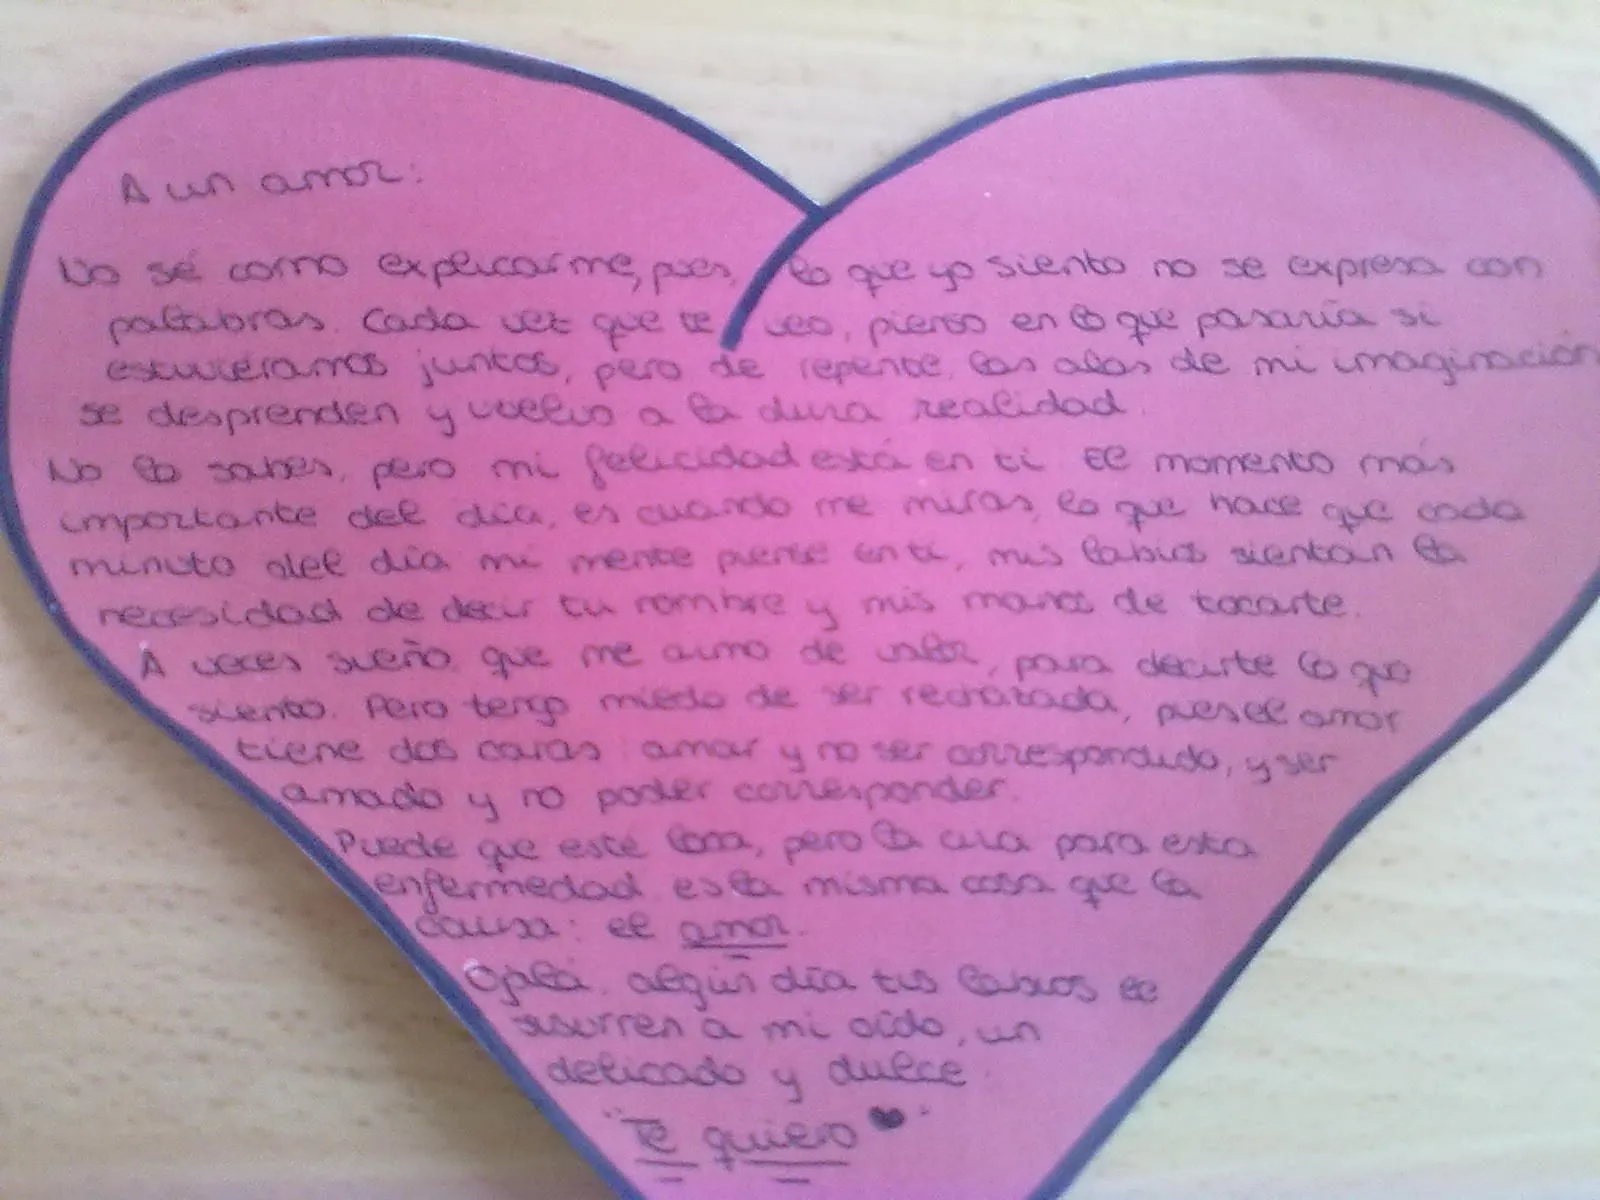 A un amor:
No sé como explicarme, pues, lo que yo siento no se expresa con
palabras. Cada vez que te veo, pienso en lo que pasaría si
estuvieramos juntos, pero de repente, las alas de mi imaginación
se desprenden y vuelvo a la dura realidad.
No lo sabes, pero mi felicidad está en ti. El momento más
importante del día, es cuando me miras, lo que hace que cada
minuto del día mi mente piense en ti, mis labios sientan la
necesidad de decir tu nombre y mis manos de tocarte.
A veces sueño que me armo de valor, para decirte lo que
siento. Pero tengo miedo de ser rechazada, pues el amor
tiene dos caras: amar y no ser correspondido, y ser
amado y no poder corresponder.
Puede que esté loca, pero la cura para esta
enfermedad es la misma cosa que la
causa: el amor.
Ojalá, algún día tus labios le
susurren a mi oído, un
delicado y dulce
"Te quiero ♥".